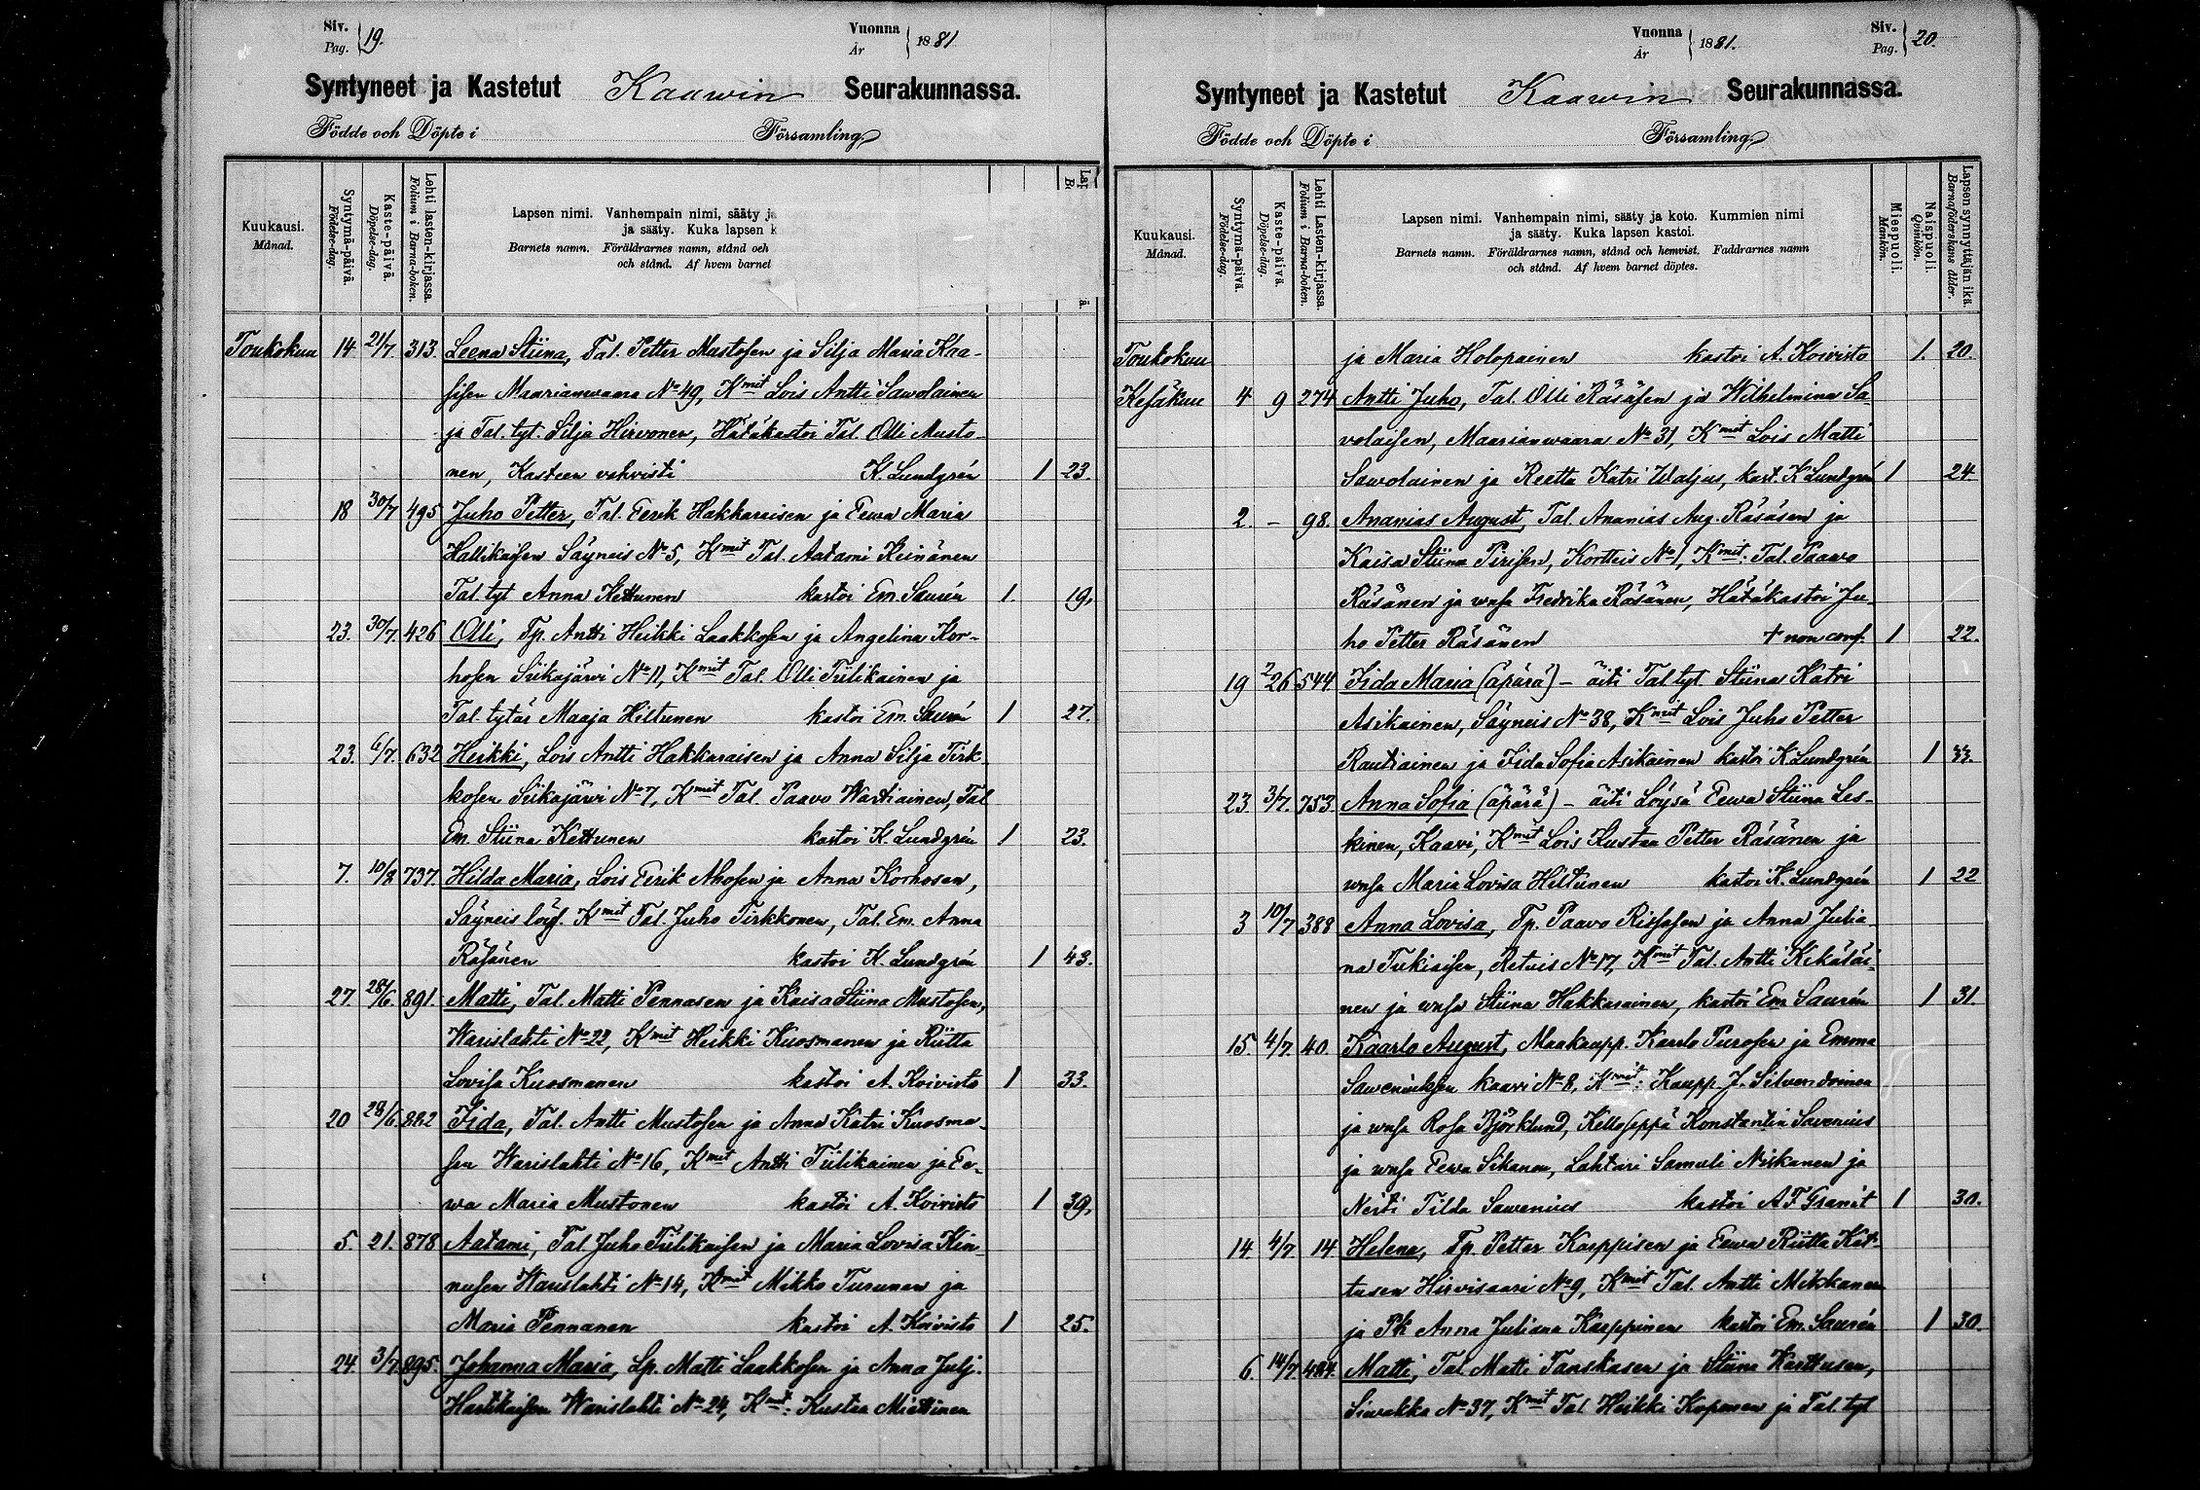 Siv. Pag. 19.
Vuonna År 1881
Syntyneet ja Kastetut Kaawin Seurakunnassa.
Födde och Döpte i Församling
Kuukausi. Månad.
Syntymä-päivä. Födelse-dag.
Kaste-päivä. Döpelse-dag.
Lehti lasten-kirjassa. Folium i Barna-boken.
Lapsen nimi. Vanhempain nimi, sääty ja
ja sääty. Kuka lapsen k
Barnets namn. Föräldrarnes namn, stånd och
och stånd. Af hvem barnet
Toukokuu 14 21/7 313. Leena Stiina, Tal. Petter Mustosen ja Silja Maria Kaa-
sisen Maarianwaara No 49, Kmit Lois Antti Sawolainen
ja Tal. tyt. Silja Hirvonen, Hätäkastoi Tal. Olli Musto-
nen, Kasteen vahvisti K. Lundgrén 1 23.
18 30/7 495 Juho Petter, Tal. Eerik Hakkaraisen ja Eewa Maria
Hallikaisen Säyneis No 5, Kmit Tal. Aatami Keinänen
Tal. tyt Anna Kettunen kastoi Em. Saurén 1 19,
23. 30/7 426 Olli, Tp. Antti Heikki Laakkosen ja Angelina Kor-
hosen Siikajärvi No 11, Kmit Tal. Olli Tiilikainen ja
Tal. tytär Maaja Hiltunen kastoi Em. Saurén 1 27.
23. 6/7. 632 Heikki, Lois Antti Hakkaraisen ja Anna Silja Tirk
kosen Siikajärvi No 7, Kmit Tal. Paavo Wartiainen, Tal
Em. Stiina Kettunen kastoi K. Lundgrén 1 23.
7. 10/8 737. Hilda Maria, Lois Eerik Ahosen ja Anna Korhosen,
Säyneis löys. Kmit Tal. Juho Tirkkonen, Tal. Em. Anna
Räsänen kastoi K. Lundgrén 1 43.
27. 28/6. 891. Matti, Tal. Matti Pennasen ja Kaisa Stiina Mustosen,
Warislahti No 22, Kmit Heikki Kuosmanen ja Riitta
Lovisa Kuosmanen kastoi A. Koivisto 1 33.
20 28/6. 882 Iida, Tal. Antti Mustosen ja Anna Katri Kuosma-
sen Warislahti No 16, Kmit Antti Tiilikainen ja Ee-
wa Maria Mustonen kastoi A. Koivisto 1 39,
5. 21. 878 Aatami, Tal. Juho Tiilikaisen ja Maria Lovisa Kin-
nusen Warislahti No 14, Kmit Mikko Turunen ja
Maria Pennanen kastoi A. Koivisto 1 25.
24. 3/7. 895. Johanna Maria, Lp. Matti Laakkosen ja Anna Julj.
Hartikaisen Warislahti No 24, Kmt: Kustaa Miettinen
Vuonna År 1881.
Siv. Pag. 20.
Syntyneet ja Kastetut Kaawin Seurakunnassa.
Födde och Döpte i Församling
Kuukausi. Månad.
Syntymä-päivä. Födelse-dag.
Kaste-päivä. Döpelse-dag.
Lehti Lasten-kirjassa. Folium i Barna-boken.
Lapsen nimi. Vanhempain nimi, sääty ja koto. Kummien nimi
ja sääty. Kuka lapsen kastoi.
Barnets namn. Föräldrarnes namn, stånd och hemvist. Faddrarnes namn
och stånd. Af hvem barnet döptes.
Miespuoli. Mankön.
Naispuoli. Qvinkön.
Lapsen synnyttäjän ikä. Barnaföderskans ålder.
Toukokuu ja Maria Holopainen kastoi A. Koivisto 1. 20.
Kesäkuu 4 9 274 Antti Juho, Tal. Olli Räsäsen ja Wilhelmina Sa-
volaisen, Maarianwaara No 31, Kmit Lois Matti
Sawolainen ja Reetta Katri Waljus, kast. K Lundgrén 1 24.
2. – 98. Ananias August, Tal. Ananias Aug. Räsäsen ja
Kaisa Stiina Pirisen, Kortteis No 1, Kmit: Tal. Paavo
Räsänen ja wmsa Fredrika Räsänen, Hätäkastoi Ju-
ho Petter Räsänen † non conf. 1 22.
19 2/26 544 Iida Maria (äpärä) – äiti Tal tyt Stiina Katri
Asikainen, Säyneis No 38, Kmit Lois Juho Petter
Rautiainen ja Iida Sofia Asikainen kastoi K. Lundgrén 1
23 3/7. 753. Anna Sofia (äpärä) – äiti Löysä Eewa Stiina Les-
kinen, Kaavi, Kmit Lois Kustaa Petter Räsänen ja
wmsa Maria Lovisa Hiltunen kastoi K. Lundgrén 1 22
3 10/7 388 Anna Lovisa, Tp. Paavo Rissasen ja Anna Julia-
na Tukiaisen, Retuis No 17, Kmit Tal. Antti Kikäläi-
nen ja wmsa Stiina Hakkarainen, kastoi Em Saurén 1 31.
15. 4/7. 40. Kaarlo August, Maakaupp. Kaarlo Purosen ja Emma
Saweniuksen kaavi No 8, Kmit: Kaupp. J. Silvendoinen
ja wmsa Rosa Björklund, Kelloseppä Konstantin Sawenius
ja wmsa Eewa Sikanen, Lahtari Samuli Niskanen ja
Neiti Tilda Sawenius kastoi A F Granit 1 30.
14. 4/7. 14. Helena, Tp. Petter Karppisen ja Eewa Riitta Kat-
tusen Hirvisaari No 9, Kmit Tal. Antti Miskanen
ja Pk Anna Juliana Karppinen kastoi Em. Saurén 1 30.
6. 14/7 Matti, Tal Matti Tanskasen ja Stiina Karttusen,
Siwakka No 37, Kmit Tal Heikki Koponen ja Tal. tyt